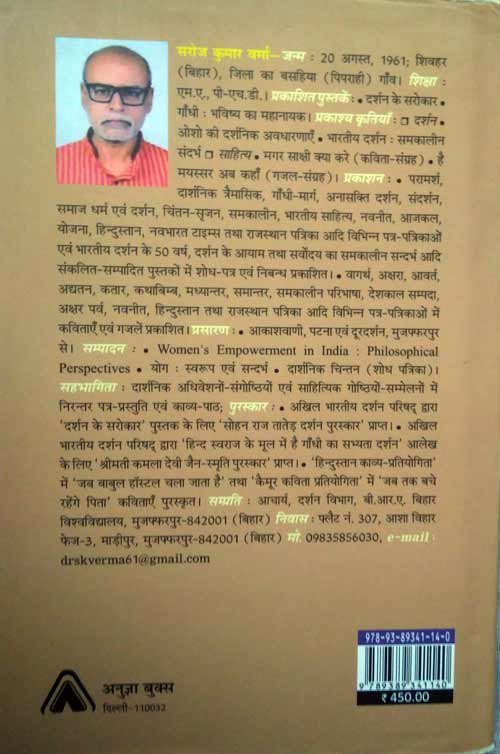 सरोज कुमार वर्मा—जन्म : 20 अगस्त, 1961; शिवहर
(बिहार), जिला का बसहिया (पिपराही) गाँव। शिक्षा :
एम.ए., पी-एच.डी.। प्रकाशित पुस्तकें: • दर्शन के सरोकार
• गाँधी : भविष्य का महानायक। प्रकाश्य कृतियाँ : □ दर्शन •
ओशो की दर्शनिक अवधारणाएँ • भारतीय दर्शन : समकालीन
संदर्भ □ साहित्य • मगर साक्षी क्या करे (कविता-संग्रह) • है
मयस्सर अब कहाँ (गजल-संग्रह)। प्रकाशन : • परामर्श,
दार्शनिक त्रैमासिक, गाँधी-मार्ग, अनासक्ति दर्शन, संदर्शन,
समाज धर्म एवं दर्शन, चिंतन-सृजन, समकालीन, भारतीय साहित्य, नवनीत, आजकल,
योजना, हिन्दुस्तान, नवभारत टाइम्स तथा राजस्थान पत्रिका आदि विभिन्न पत्र-पत्रिकाओं
एवं भारतीय दर्शन के 50 वर्ष, दर्शन के आयाम तथा सर्वोदय का समकालीन सन्दर्भ आदि
संकलित-सम्पादित पुस्तकों में शोध-पत्र एवं निबन्ध प्रकाशित। • वागर्थ, अक्षरा, आवर्त,
अद्यतन, कतार, कथाबिम्ब, मध्यान्तर, समान्तर, समकालीन परिभाषा, देशकाल सम्पदा,
अक्षर पर्व, नवनीत, हिन्दुस्तान तथा राजस्थान पत्रिका आदि विभिन्न पत्र-पत्रिकाओं में
कविताएँ एवं गजलें प्रकाशित। प्रसारण : • आकाशवाणी, पटना एवं दूरदर्शन, मुजफ्फरपुर
से। सम्पादन : • Women's Empowerment in India : Philosophical
Perspectives • योग : स्वरूप एवं सन्दर्भ • दार्शनिक चिन्तन (शोध पत्रिका)।
सहभागिता : दार्शनिक अधिवेशनों-संगोष्ठियों एवं साहित्यिक गोष्ठियों-सम्मेलनों में
निरन्तर पत्र-प्रस्तुति एवं काव्य-पाठ; पुरस्कार : • अखिल भारतीय दर्शन परिषद् द्वारा
'दर्शन के सरोकार' पुस्तक के लिए 'सोहन राज तातेड़ दर्शन पुरस्कार' प्राप्त। • अखिल
भारतीय दर्शन परिषद् द्वारा 'हिन्द स्वराज के मूल में है गाँधी का सभ्यता दर्शन' आलेख
के लिए 'श्रीमती कमला देवी जैन-स्मृति पुरस्कार' प्राप्त। • 'हिन्दुस्तान काव्य-प्रतियोगिता'
में 'जब बाबुल हॉस्टल चला जाता है' तथा 'कैमूर कविता प्रतियोगिता' में 'जब तक बचे
रहेंगे पिता' कविताएँ पुरस्कृत। सम्प्रति : आचार्य, दर्शन विभाग, बी.आर.ए. बिहार
विश्वविद्यालय, मुजफ्फरपुर-842001 (बिहार) निवास : फ्लैट नं. 307, आशा विहार
फेज-3, माड़ीपुर, मुजफ्फरपुर-842001 (बिहार) मो. 09835856030, e-mail :
drskverma61@gmail.com
978-93-89341-14-0
9 789389 341140
₹ 450.00
अनुज्ञा बुक्स
दिल्ली-110032